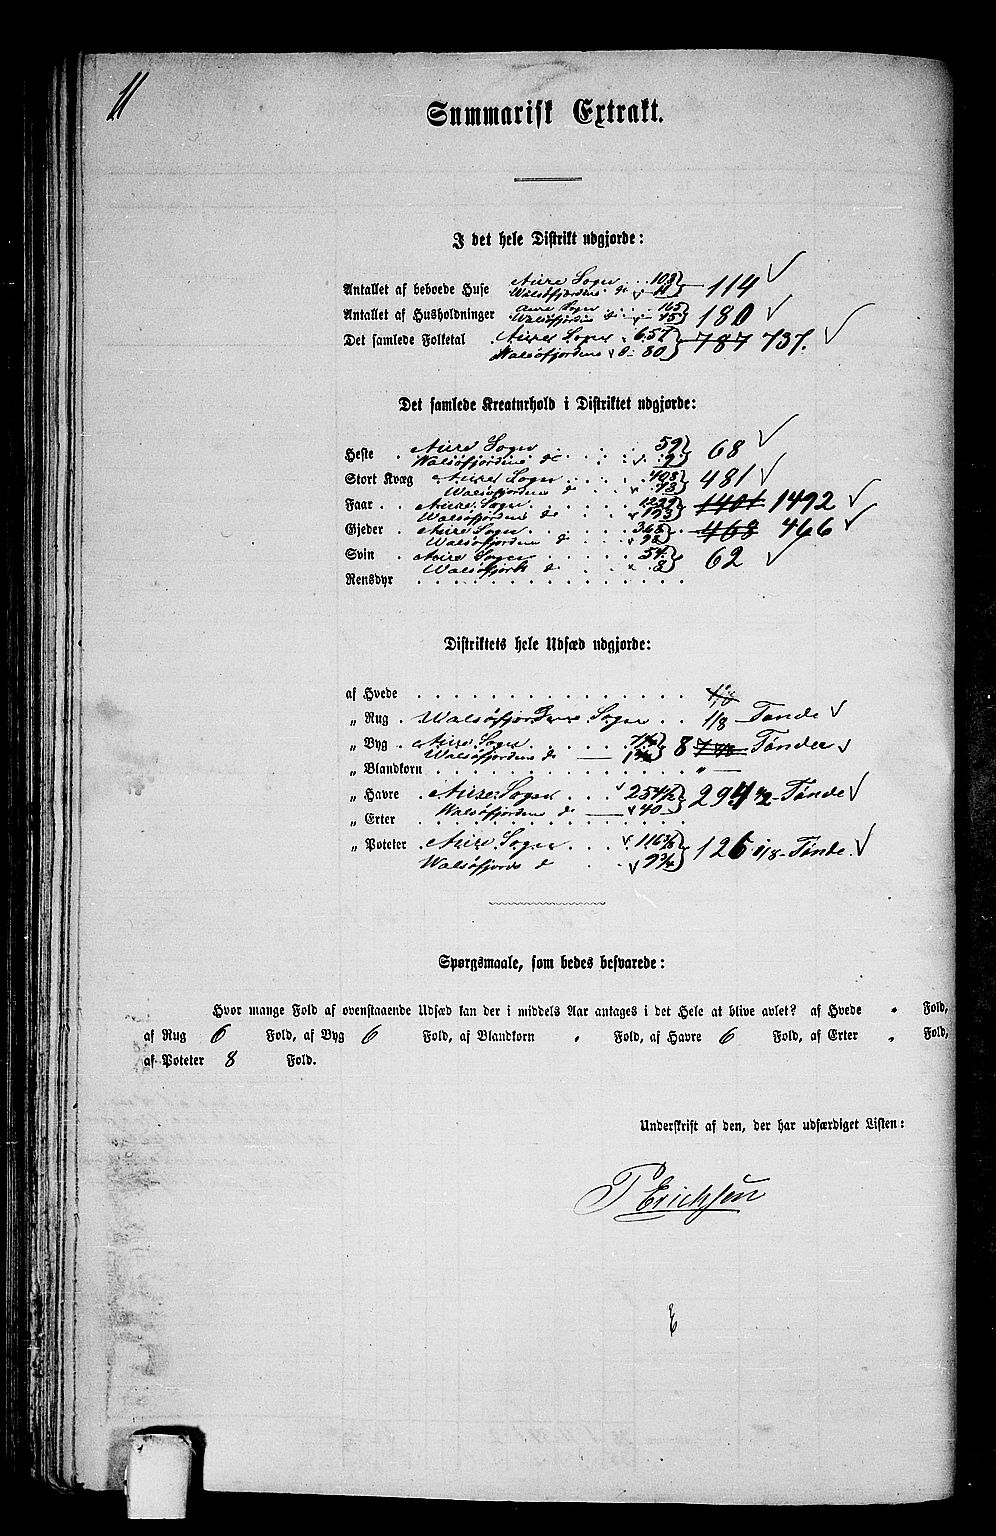 11
Summarisk Extrakt.
I det hele Distrikt udgjorde:
Antallet af beboede Huse Aure Sogn 103
Walsøfjordens do 11 } 114
Antallet af Husholdninger Aure Sogn 165
Walsøfjordens do 15 } 180
Det samlede Folketal Aures Sogn 657
Walsøfjordens do 80 } 787 737.
Det samlede Kreaturhold i Distriktet udgjorde:
Heste Aure Sogn 59
Walsøfjordens do 9 } 68
Stort Kvæg Aures Sogn 408
Walsøfjordens d 73 } 481
Faar Aure Sogn 1299
Walsøfjordens do 193 } 1401 1492
Gjeder Aure Sogn 368
Walsøfjordens do 98 } 468 466
Svin Aure Sogn 54
Walsøfjords d 8 } 62
Rensdyr
Distriktets hele Udsæd udgjorde:
af Hvede 1/8
„ Rug Walsøfjordens Sogn 1/8 Tønde
„ Byg Aure Sogn
Walsøfjordens do } 8 Tønder
„ Blandkorn "
„ Havre Aure Sogn 254 1/2
Walsøfjordens do 40 } 294 1/2 Tønde
„ Erter
„ Poteter Aure Sogn 116
Walsøfjords d } 126 1/8 Tønde.
Spørgsmaale, som bedes besvarede:
Hvor mange Fold af ovenstaaende Udsæd kan der i middels Aar antages i det Hele at blive avlet? af Hvede " Fold,
af Rug 6 Fold, af Byg 6 Fold, af Blandkorn " Fold, af Havre 6 Fold, af Erter " Fold,
af Poteter 8 Fold.
Underskrift af den, der har udfærdiget Listen:
P Erichsen